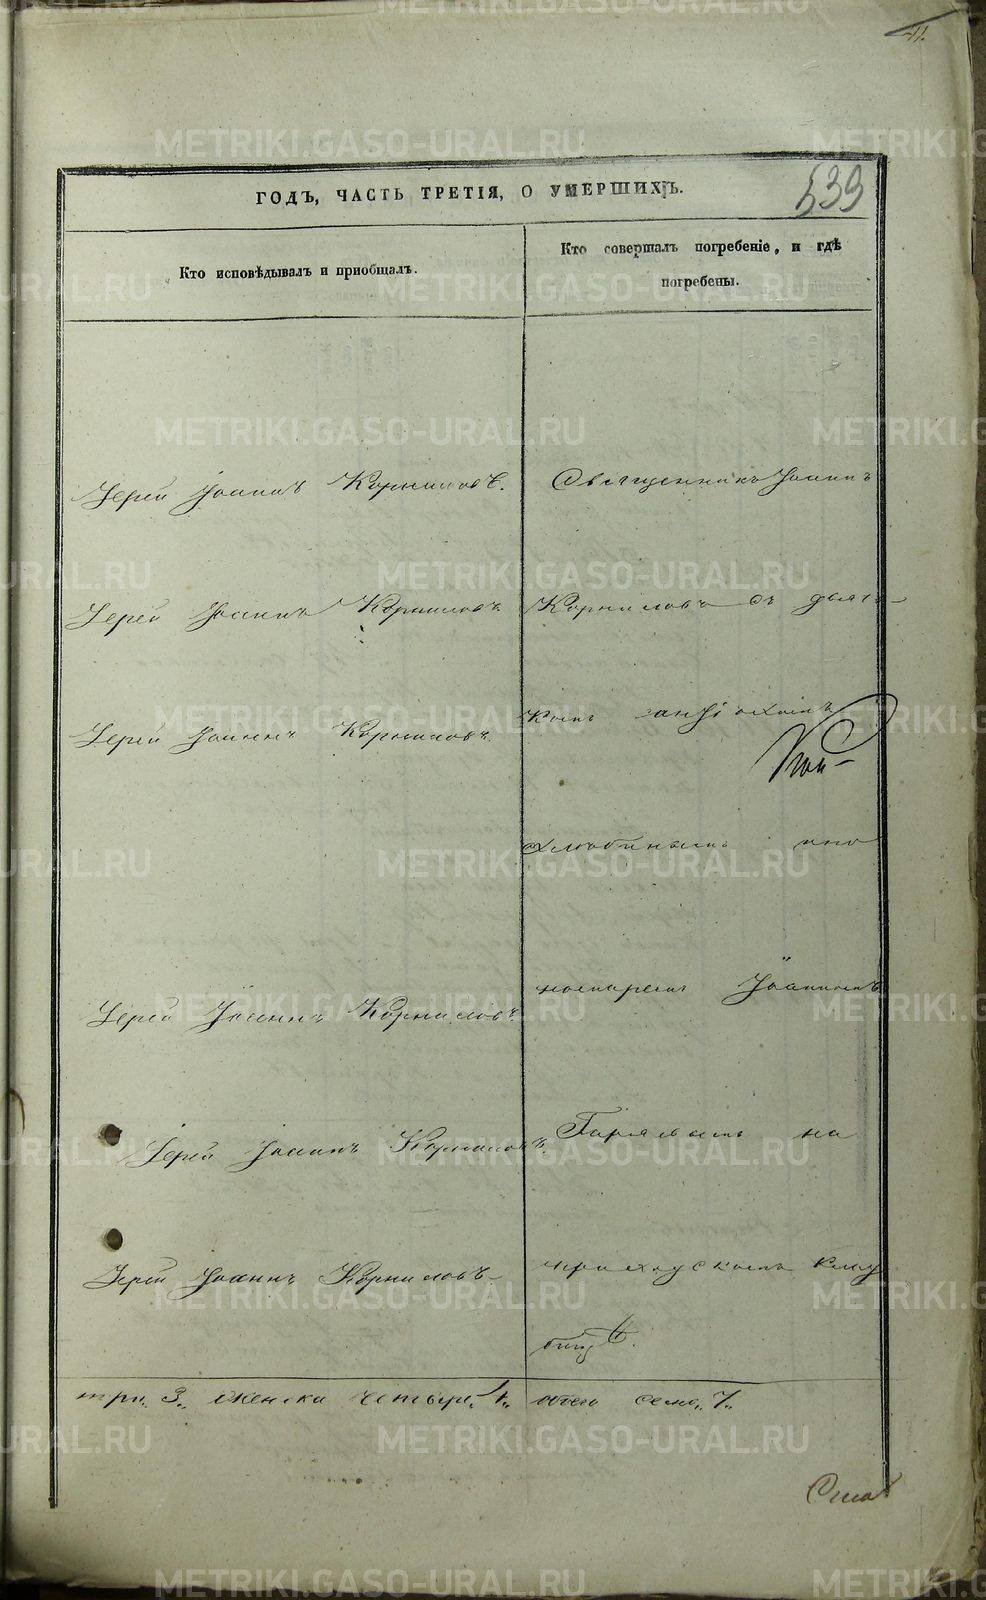 11.
539
ГОДЪ, ЧАСТЬ ТРЕТІЯ, О УМЕРШИХЪ.
Кто исповѣдывалъ и пріобщалъ.
Кто совершалъ погребеніе, и гдѣ
погребены.
Іерей Іоаннъ Корниловъ.
Священникъ Іоаннъ
Іерей Іоаннъ Корниловъ
Корниловъ съ дьяч-
Іерей Іоаннъ Корниловъ.
комъ
Хлѣбинымъ и по
Іерей Іоаннъ Корниловъ
номаремъ Іоанномъ
Іерей Іоаннъ Корниловъ.
на
Іерей Іоаннъ Корниловъ
приходскомъ клад
бищѣ.
три 3. женска четыре 4. обоего семь 7.
METRIKI.GASO-URAL.RU